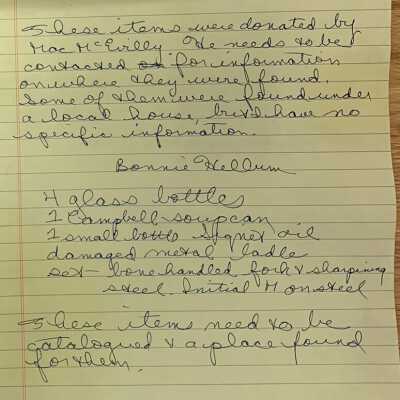 These items were donated by
Mac McEvilly. He needs to be
contacted for information
on where they were found.
Some of them were found under
a local house, but I have no
specific information.
Bonnie Hellum
4 glass bottles
1 Campbell soup can
1 small bottle Signet oil
damaged metal ladle
set - bone handled fork & sharpining
steel. Initial M on steel
These items need to be
catalogued & a place found
for them.